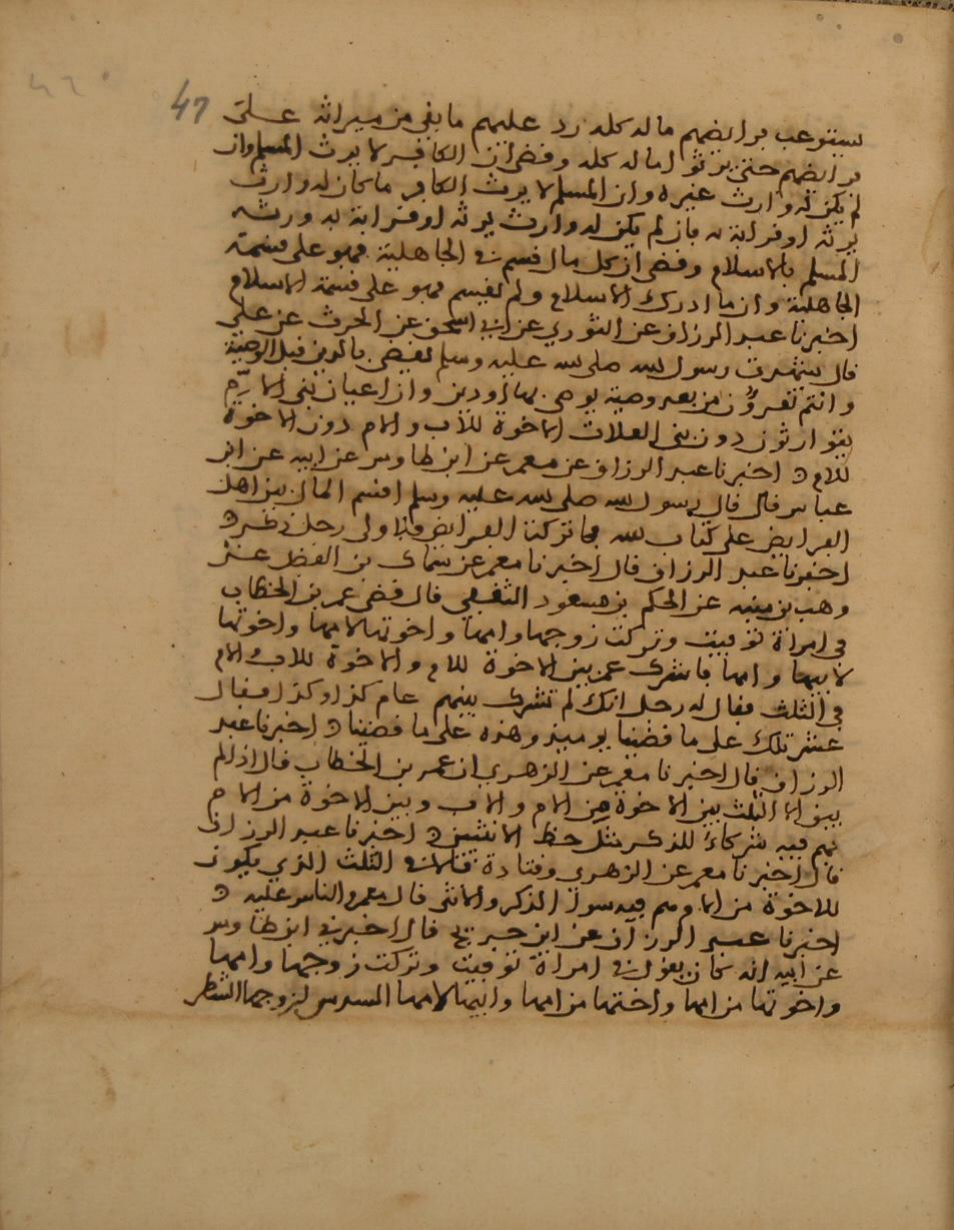 47
يستوعب فرايضهم ماله كله رد عليهم ما بقي من ميراثه على
فرايضهم حتى يرثوا ماله كله وقضى ان الكافر لا يرث المسلم وان
لم يكن له وارث غيره وان المسلم لا يرث الكافر ما كان له وارث
يرثه او قرابة به فان لم يكن له وارث يرثه او قرابة به ورثه
المسلم بالاسلام وقضى ان كل مال قسم في الجاهلية فهو على قسمة
الجاهلية وان ما ادرك الاسلام ولم يقسم فهو على قسمة الاسلام
اخبرنا عبد الرزاق عن الثوري عن ابي اسحق عن الحرث عن علي
قال شهدت رسول الله صلى الله عليه وسلم يقضي بالدين قبل الوصية
وانتم تقرؤن من بعد وصية يوصى بها او دين وان اعيان بني الام
يتوارثون دون بني العلات الاخوة للاب والام دون الاخوة
للام اخبرنا عبد الرزاق عن معمر عن ابن طاوس عن ابيه عن ابن
عباس قال قال رسول الله صلى الله عليه وسلم اقسم المال بين اهل
الفرايض على كتاب الله فما تركت الفرايض فلاولى رجل ذكر
اخبرنا عبد الرزاق قال اخبرنا معمر عن سماك بن الفضل عن
وهب بن منبه عن الحكم بن مسعود الثقفي قال قضى عمر بن الخطاب
في امراة توفيت وتركت زوجها وامها واخوتها لامها واخوتها
لابيها وامها فاشرك عمر بين الاخوة للام والاخوة للاب والام
في الثلث فقال له رجل انك لم تشرك بينهم عام كذا وكذا فقال
عمر تلك على ما قضينا يوميذ وهذه على ما قضينا اخبرنا عبد
الرزاق قال اخبرنا معمر عن الزهري ان عمر بن الخطاب قال اذا لم
يبق الا الثلث بين الاخوة من الام والاب وبين الاخوة من الام
فهم فيه شركاء للذكر مثل حظ الانثيين اخبرنا عبد الرزاق
قال اخبرنا معمر عن الزهري وقتادة قالا في الثلث الذي يكون
للاخوة من الام هم فيه سوا الذكر والانثى قال معمر والناس عليه
اخبرنا عبد الرزاق عن ابن جريج قال اخبرني ابن طاوس
عن ابيه انه كان يقول في امراة توفيت وتركت زوجها وامها
واخوتها من امها واختها من امها وابيها لامها السدس لزوجها الشطر